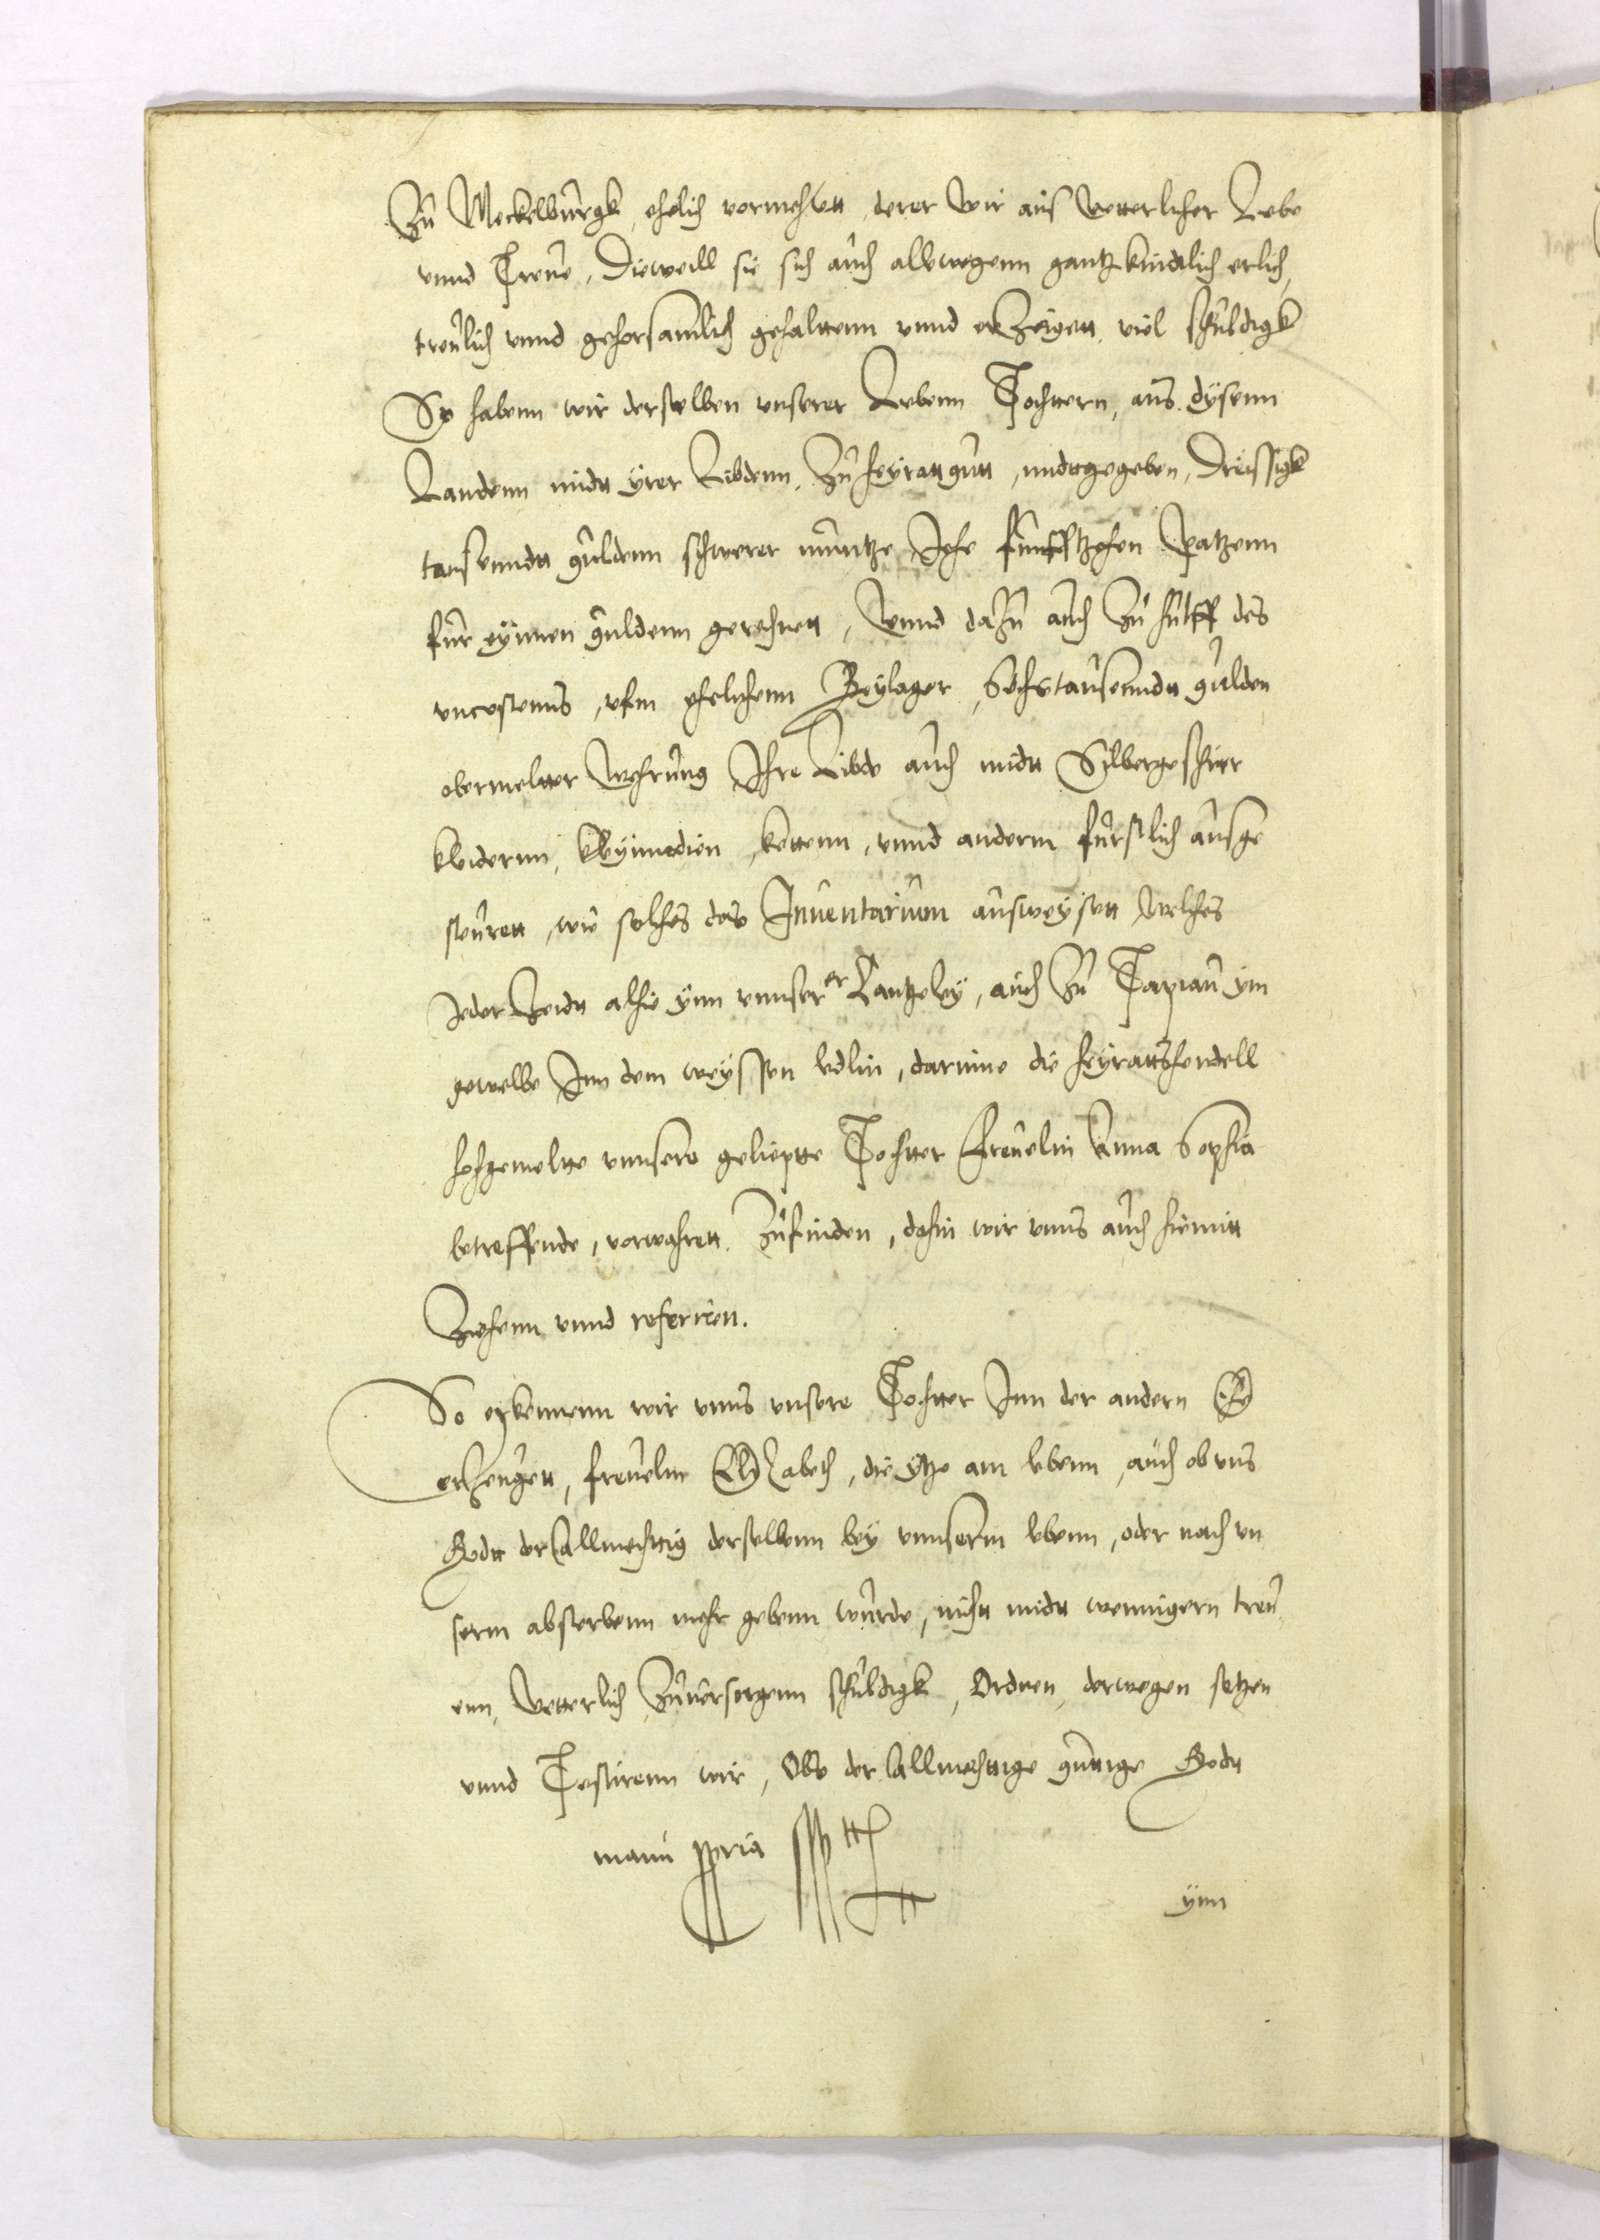 Zu Meckelburgk, ehelich vormehlett, derer wir aus vetterlicher Liebe
vnnd Treue, Dieweill sie sich auch allewegenn gantz kindtlich erlich,
treulich vnnd gehorsamlich gehalttenn vnnd erzeigett, viel schuldigk
So habenn wir derselben vnserer Liebenn Tochttern, aus dysenn
Landenn midtt yrer Libdenn, zu heyrattgutt, midttgegeben, Dreissigk
tausenndtt guldenn schwerer muntze, Jhe funfftzehen patzenn
fur eynnen guldenn gerechnett, Vnnd dazu auch zu hulff des
vncostenns, vfm ehelichenn Beylager, Sechstausenndtt gulden
obermeltter Wehrung Ihre Libde auch midtt Sylbergeschirr
kleidernn, kleynnodien, kettenn, vnnd anderm furstlich ausge
steurett, wie solches das Inuentarium ausweysett, welches
Jeder Zeidtt alhie ynn vnnser er Cantzeley, auch zu Tapiau ym
gewelbe Inn dem weyssen ledlin, darinne die heyrattshendell
hochgemeltte vnnsere geliepte Tochtter Freuelin Anna Sophia
betreffende, vorwahrett, zufinden, dahin wir vnns auch hiemitt
Ziehenn vnnd referiren.
So erkennenn wir vnns vnsere Tochtter Inn der andern Ehe
erzeugett, freuelin Elizabeth, die ytzo am lebenn, auch ob vns
Godtt der Allmechttig derselbenn bey vnnserm lebenn, oder nach vn
serm absterbenn mehr gebenn wurde, nicht midtt wenigern treu
enn, Vetterlich zuuersorgenn schuldigk, Ordnen, derwegen setzen
vnnd Testirenn wir, Obe der Allmechttige guttige Godtt
manu ppria sst
ynn